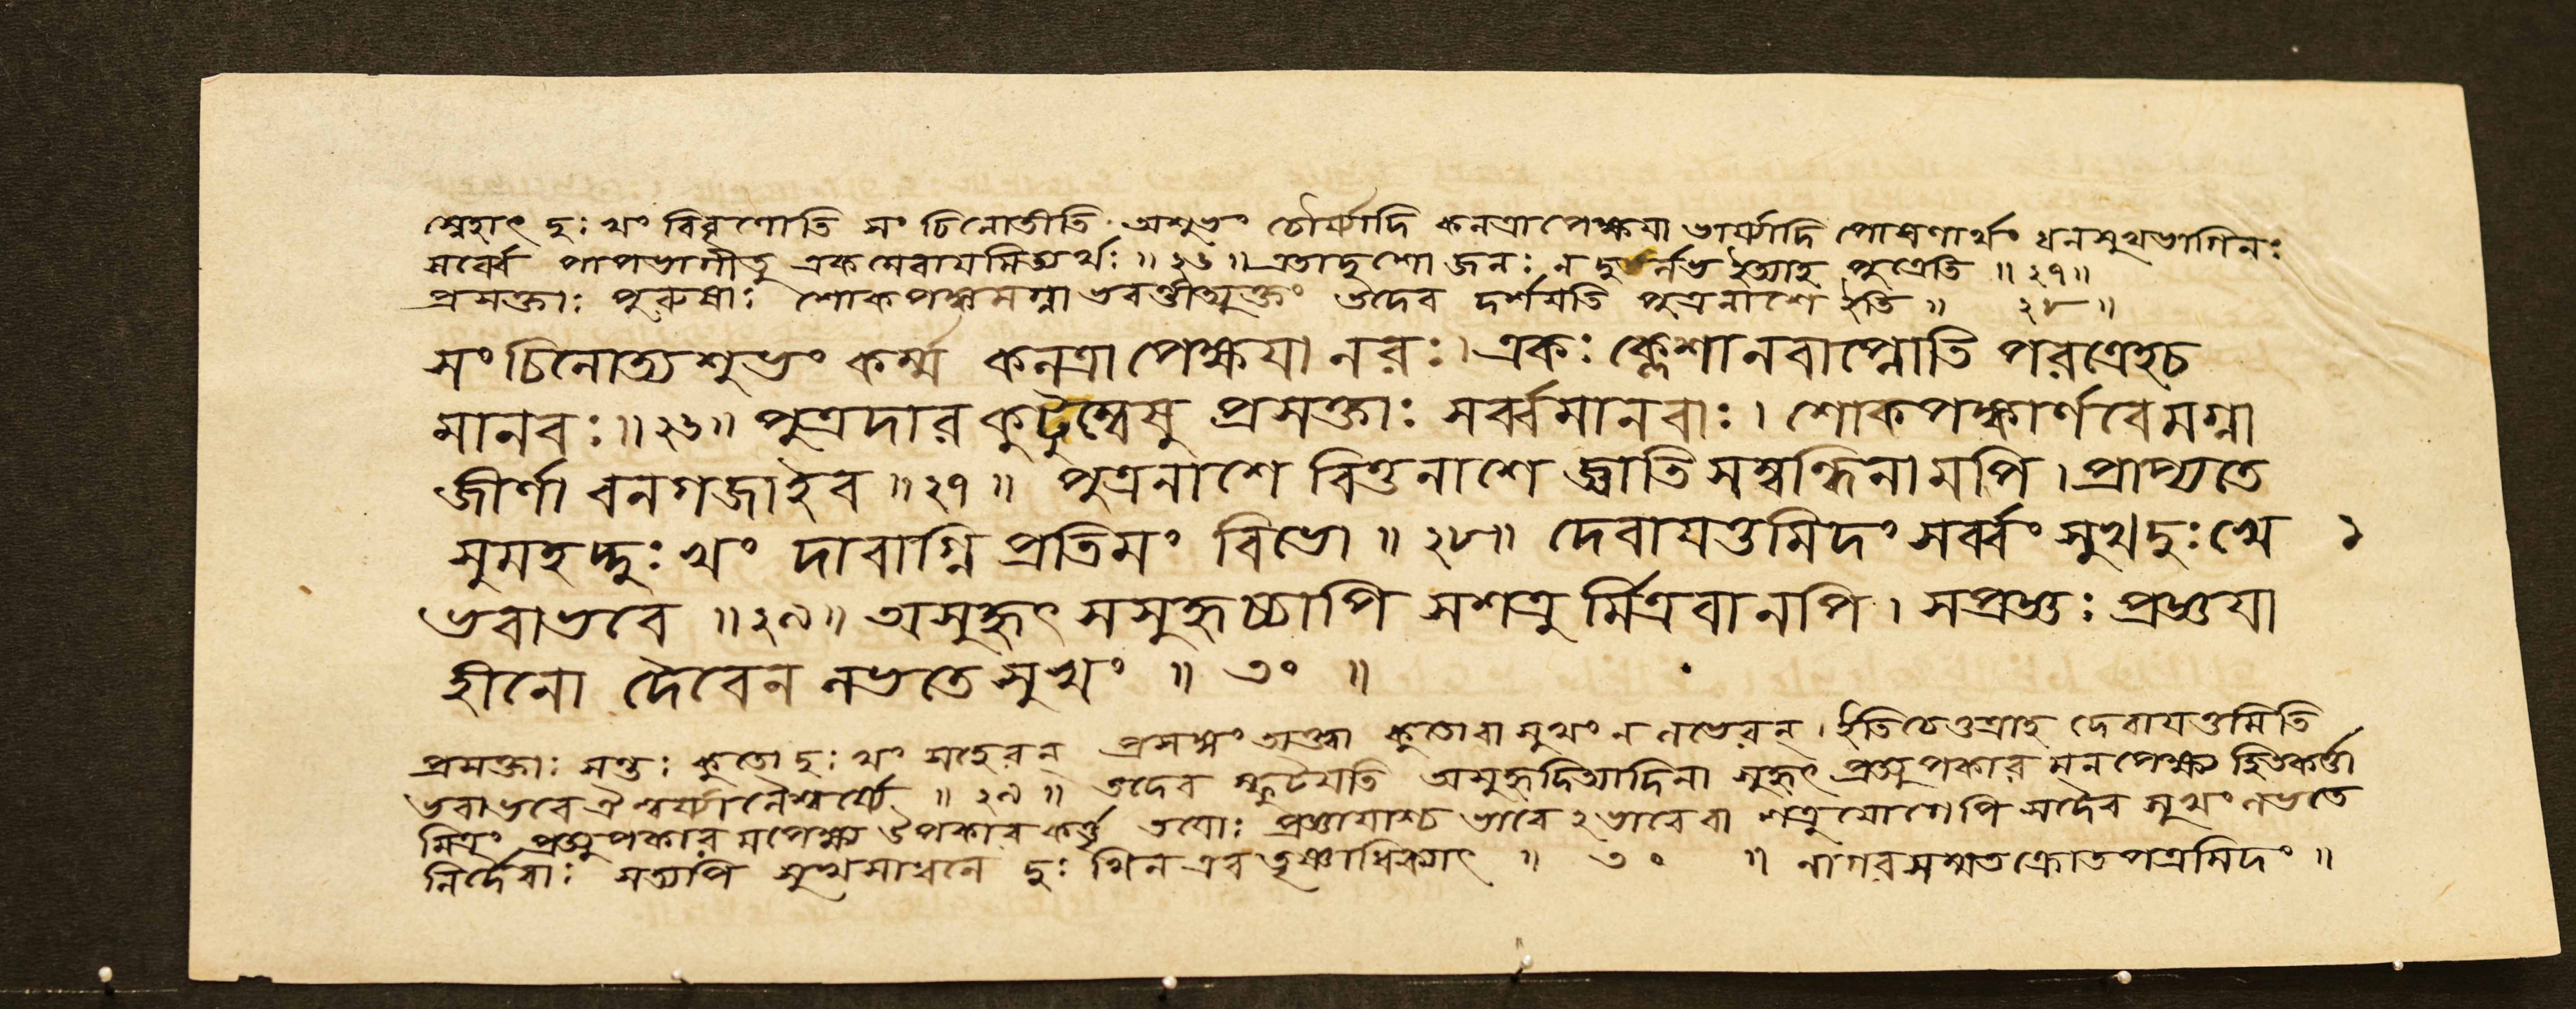 স্নেহাৎ দুঃখং বিবৃণোতি সংচিনোতীতি অশুভং চৌর্য্যাদি কলত্রাপেক্ষয়া ভার্য্যাদি পোষণার্থং ধনসুখভাগিনঃ
সর্ব্বে পাপভাগীতু একমেবায়মিত্যর্থঃ ॥ ২৬ ॥ এতাদৃশো জনঃ ন দুর্লভ ইত্যাহ পুত্রেতি ॥ ২৭ ॥
প্রসক্তাঃ পুরুষাঃ শোকপঙ্কমগ্না ভবন্তীত্যুক্তং তদেব দর্শয়তি পুত্রনাশে ইতি ॥ ২৮ ॥
সংচিনোত্যশুভং কর্ম্ম কলত্রাপেক্ষয়া নরঃ। একঃ ক্লেশানবাপ্নোতি পরত্রেহচ
মানবঃ ॥ ২৬ ॥ পুত্রদারকুটুম্বেষু প্রসক্তাঃ সর্ব্বমানবাঃ। শোকপঙ্কার্ণবে মগ্না
জীর্ণা বনগজাইব ॥ ২৭ ॥ পুত্রনাশে বিত্তনাশে জ্ঞাতিসম্বন্ধিনামপি। প্রাপ্যতে
সুমহদ্দুঃখং দাবাগ্নিপ্রতিমং বিভো ॥ ২৮ ॥ দৈবায়ত্তমিদং সর্ব্বং সুখদুঃখে
ভবাভবে ॥ ২৯ ॥ অসুহৃৎ সসুহৃচ্চাপি সশত্রুর্মিত্রবানপি। সপ্রজ্ঞঃ প্রজ্ঞয়া
হীনো দৈবেন লভতে সুখং ॥ ৩০ ॥
প্রসক্তাঃ সন্তঃ কুতো দুঃখং সহেরন্ প্রসঙ্গং ত্যক্ত্বা কুতোবা সুখং ন লভেরন্। ইতিচেত্তত্রাহ দৈবায়ত্তমিতি
ভবাভবে ঐশ্বর্য্যানৈশ্বর্য্যে ॥ ২৯ ॥ তদেব স্ফুটয়তি অসুহৃদিত্যাদিনা সুহৃৎ প্রত্যুপকারমনপেক্ষ্য হিতকর্ত্তা
মিত্রং প্রত্যুপকারমপেক্ষ্য উপকারকর্ত্তৃ তয়োঃ প্রজ্ঞায়াশ্চ ভাবে ২ভাবেবা শত্রুযোগেপি সদৈব সুখং লভতে
নির্দৈবাঃ সত্যপি সুখসাধনে দুঃখিন এব তৃষ্ণাধিক্যাৎ ॥ ৩০ ॥ নাগরসম্মত ক্রোতপত্রমিদং ॥